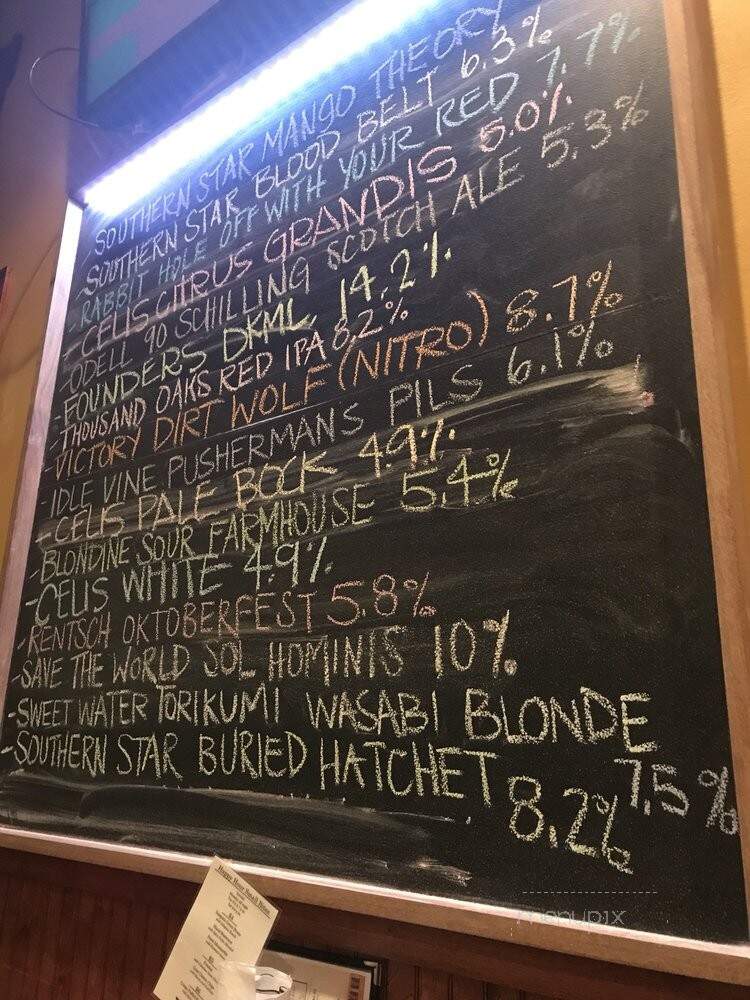 - SOUTHERN STAR MANGO THEORY
- SOUTHERN STAR BLOOD BELT 6.3%
- RABBIT HOLE OFF WITH YOUR RED 7.7%
- CELIS CITRUS GRANDIS 5.0%
- ODELL 90 SCHILLING SCOTCH ALE 5.3%
- FOUNDERS DKML 14.2%
- THOUSAND OAKS RED IPA 8.2%
- VICTORY DIRT WOLF (NITRO) 8.7%
- IDLE VINE PUSHERMANS PILS 6.1%
- CELIS PALE BOCK 4.9%
- BLONDINE SOUR FARMHOUSE 5.4%
- CELIS WHITE 4.9%
- RENTSCH OKTOBERFEST 5.8%
- SAVE THE WORLD SOL HOMINIS 10%
- SWEET WATER TORIKUMI WASABI BLONDE 7.5%
- SOUTHERN STAR BURIED HATCHET 8.2%
Happy Hour Small Bites
menupix